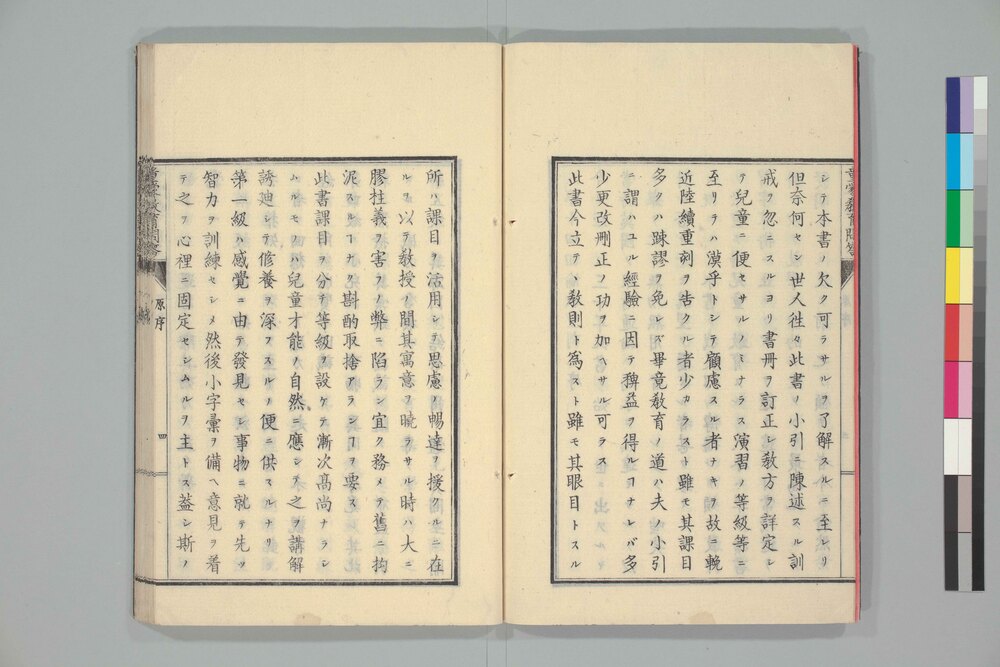 シテ本書ノ欠ク可ラサルヲ了解スルニ至レリ
但奈何セン世人徃々此書ノ小引ニ陳述スル訓
戒ヲ忽ニスルヨリ書冊ヲ訂正レ教方ヲ詳定レ
テ兒童ニ便セサルノミナラス演習ノ等級等ニ
至リテハ漠乎トシテ顧慮スル者ナキヲ故ニ輓
近陸續重刻ヲ告クル者少カラスト雖モ其課目
多クハ踈謬ヲ免レズ畢竟教育ノ道ハ夫ノ小引
ニ謂ハユル經驗ニ因テ稗益ヲ得ルヿナレバ多
少更改刪正ノ功ヲ加ヘサル可ラス
此書今立テヽ教則ト為スト雖モ其眼目トスル
所ハ課目ヲ活用シテ思慮ノ暢達ヲ援クルニ在
ルヲ以テ教授ノ間其寓意ヲ暁ラサル時ハ大ニ
膠柱義ヲ害フノ弊ニ陷ラン宜ク務メテ舊ニ拘
泥スルヿナク斟酌取捨アランヿヲ要ス
此書課目ヲ分テ等級ヲ設ケテ漸次高尚ナラシ
ハルモノハ兒童才能ノ自然ニ應シテ之ヲ講解
誘廸シテ修養ヲ深フスルノ便ニ供スルナリ
第一級ハ感覺ニ由テ發見セシ事物ニ就テ先ツ
智力ヲ訓練セシメ然後小字彙ヲ備ヘ意見ヲ着
テ之ヲ心裡ニ固定セシムルヲ主トス蓋シ斯ノ
原序
四